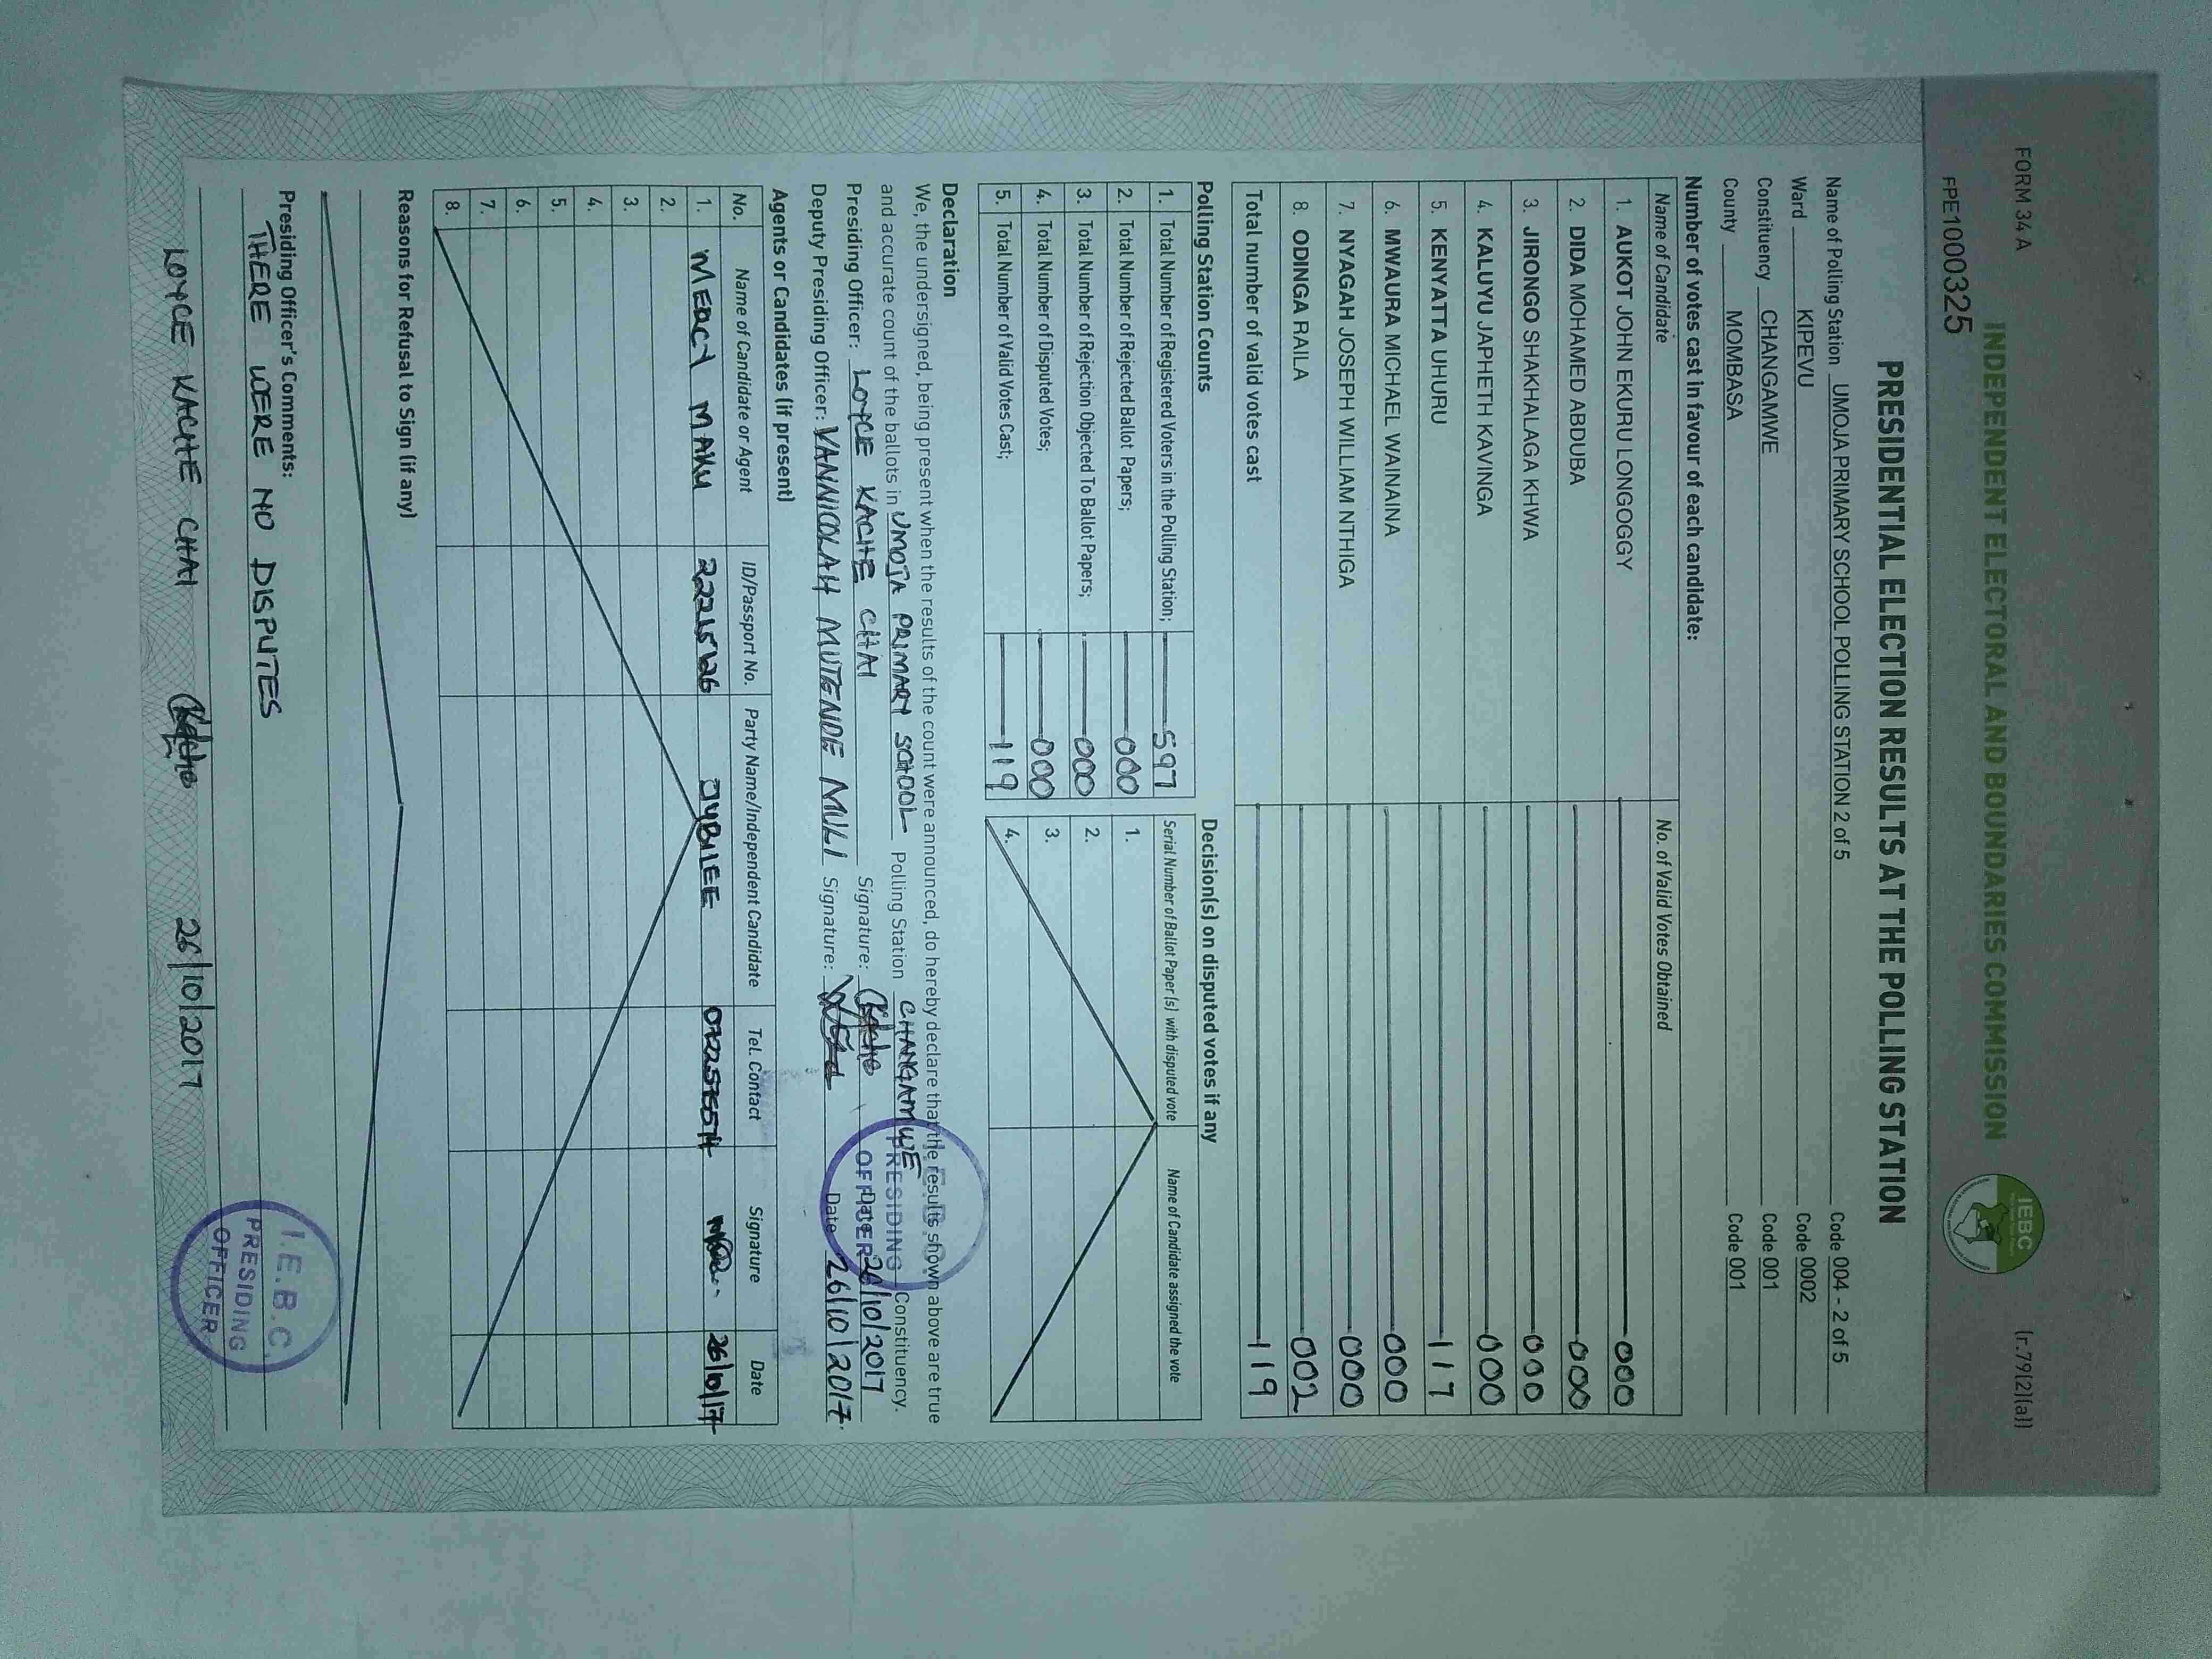 FORM 34 A
(r.79(2)(a))
INDEPENDENT ELECTORAL AND BOUNDARIES COMMISSION
IEBC
FPE1000325
PRESIDENTIAL ELECTION RESULTS AT THE POLLING STATION
Name of Polling Station UMOJA PRIMARY SCHOOL POLLING STATION 2 of 5 Code 004 - 2 of 5
Ward KIPEVU Code 0002
Constituency CHANGAMWE Code 001
County MOMBASA Code 001
Number of votes cast in favour of each candidate:
Name of Candidate No. of Valid Votes Obtained
1. AUKOT JOHN EKURU LONGOGGY 000
2. DIDA MOHAMED ABDUBA 000
3. JIRONGO SHAKHALAGA KHWA 000
4. KALUYU JAPHETH KAVINGA 000
5. KENYATTA UHURU 117
6. MWAURA MICHAEL WAINAINA 000
7. NYAGAH JOSEPH WILLIAM NTHIGA 000
8. ODINGA RAILA 002
Total number of valid votes cast 119
Polling Station Counts
1. Total Number of Registered Voters in the Polling Station; 597
2. Total Number of Rejected Ballot Papers; 000
3. Total Number of Rejection Objected To Ballot Papers; 000
4. Total Number of Disputed Votes; 000
5. Total Number of Valid Votes Cast; 119
Decision(s) on disputed votes if any
Serial Number of Ballot Paper (s) with disputed vote Name of Candidate assigned the vote
1.
2.
3.
4.
Declaration
We, the undersigned, being present when the results of the count were announced, do hereby declare that the results shown above are true
and accurate count of the ballots in UMOJA PRIMARY SCHOOL Polling Station CHANGAMWE Constituency.
Presiding Officer: LOYCE KACHE CHAI Signature: Kache Date 26/10/2017
Deputy Presiding Officer: VANNICOLAH MUTENDE MULI Signature: Date 26/10/2017.
PRESIDING
OFFICER
Agents or Candidates (if present)
No. Name of Candidate or Agent ID/Passport No. Party Name/Independent Candidate Tel. Contact Signature Date
1. MERCY MAKU JUBILEE 26/10/17
2.
3.
4.
5.
6.
7.
8.
Reasons for Refusal to Sign (if any)
Presiding Officer's Comments:
THERE WERE NO DISPUTES
LOYCE KACHE CHAI Kache 26/10/2017
I.E.B.C.
PRESIDING
OFFICER